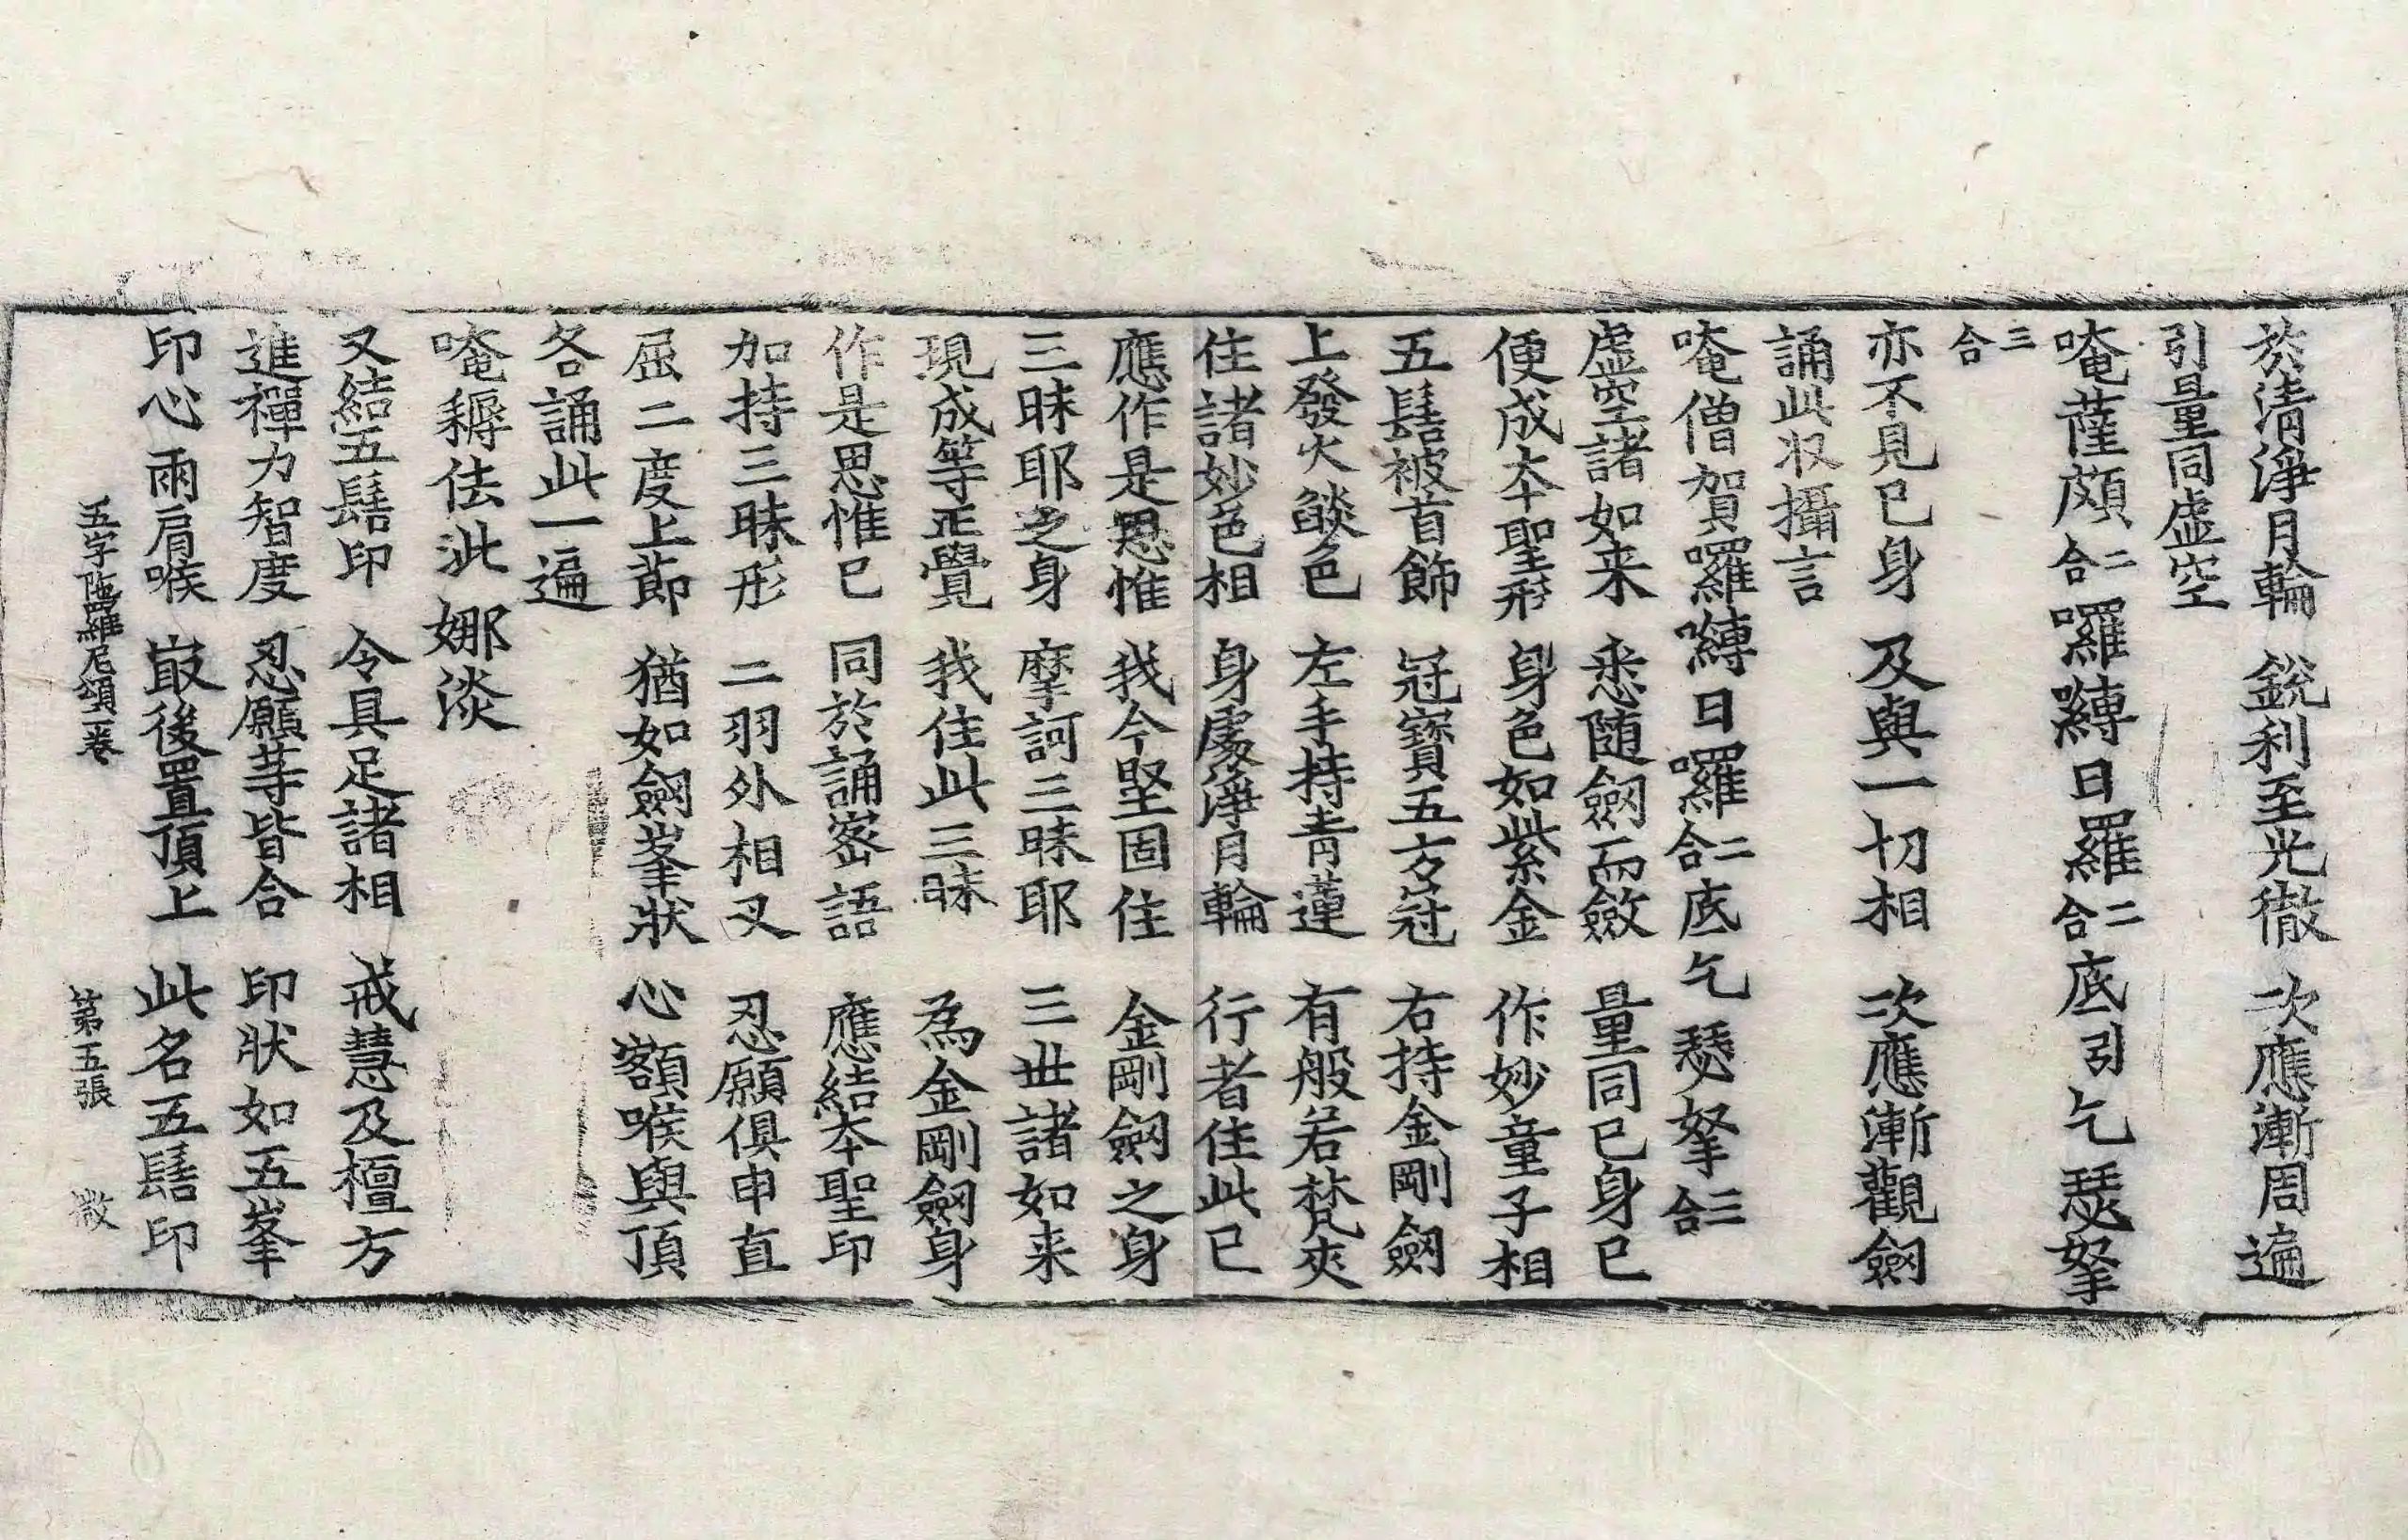 於清淨月輪 銳利至光徹 次應漸周遍
引量同虛空
唵薩頗二合囉嚩日羅二合底引乞瑟拏
三合
亦不見已身 及與一切相 次應漸觀劔
誦此收攝言
唵僧賀囉嚩日囉二合底乞瑟拏三合
虛空諸如来 悉隨劔而斂 量同已身已
便成夲聖形 身色如紫金 作妙童子相
五髻被首飾 冠寶五方冠 右持金剛劔
上發火燄色 左手持青蓮 有般若梵夾
住諸妙色相 身處淨月輪 行者住此已
應作是思惟 我今堅固住 金剛劔之身
三昧耶之身 摩訶三昧耶 三世諸如来
現成等正覺 我住此三昧 為金剛劔身
作是思惟已 同於誦密語 應結夲聖印
加持三昧形 二羽外相叉 忍願俱申直
屈二度上節 猶如劔峯狀 心額喉與頂
各誦此一遍
唵耨佉泚娜淡
又結五髻印 令具足諸相 戒慧及檀方
進禪力智度 忍願等皆合 印狀如五峯
印心兩肩喉 㝡後置頂上 此名五髻印
五字陁羅尼頌一卷 第五張 散